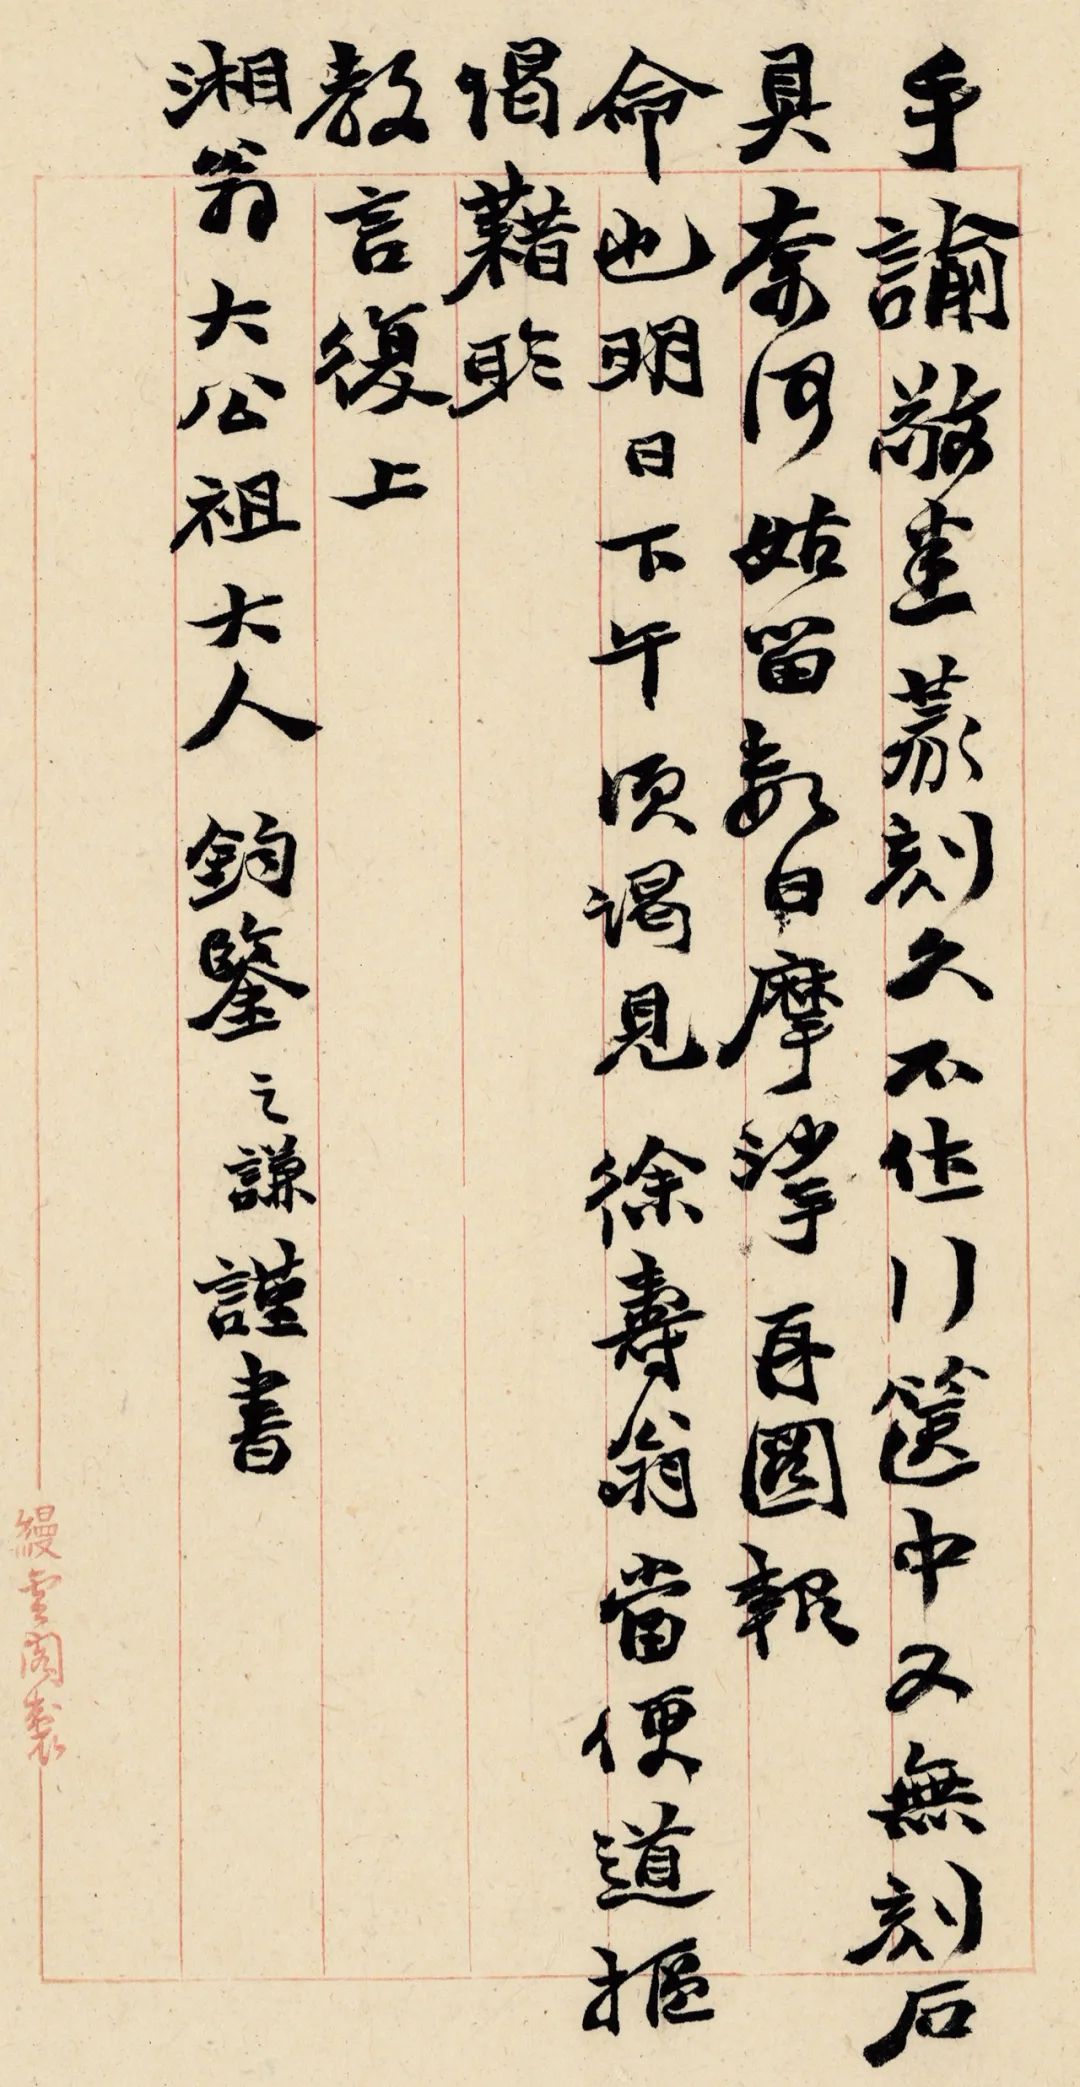 手諭敬悉篆刻久不作行篋中又無刻石
具奈何姑留數日摩挲再圖報
命也明日下午須謁見徐壽翁當便道摳
偈藉聆
教言復上
湘翁大公祖大人鈞鑒之謙謹書
縵雲閣製